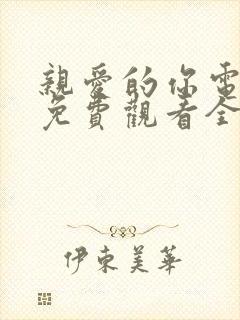 親愛的你電
免費觀看全
伊東美華